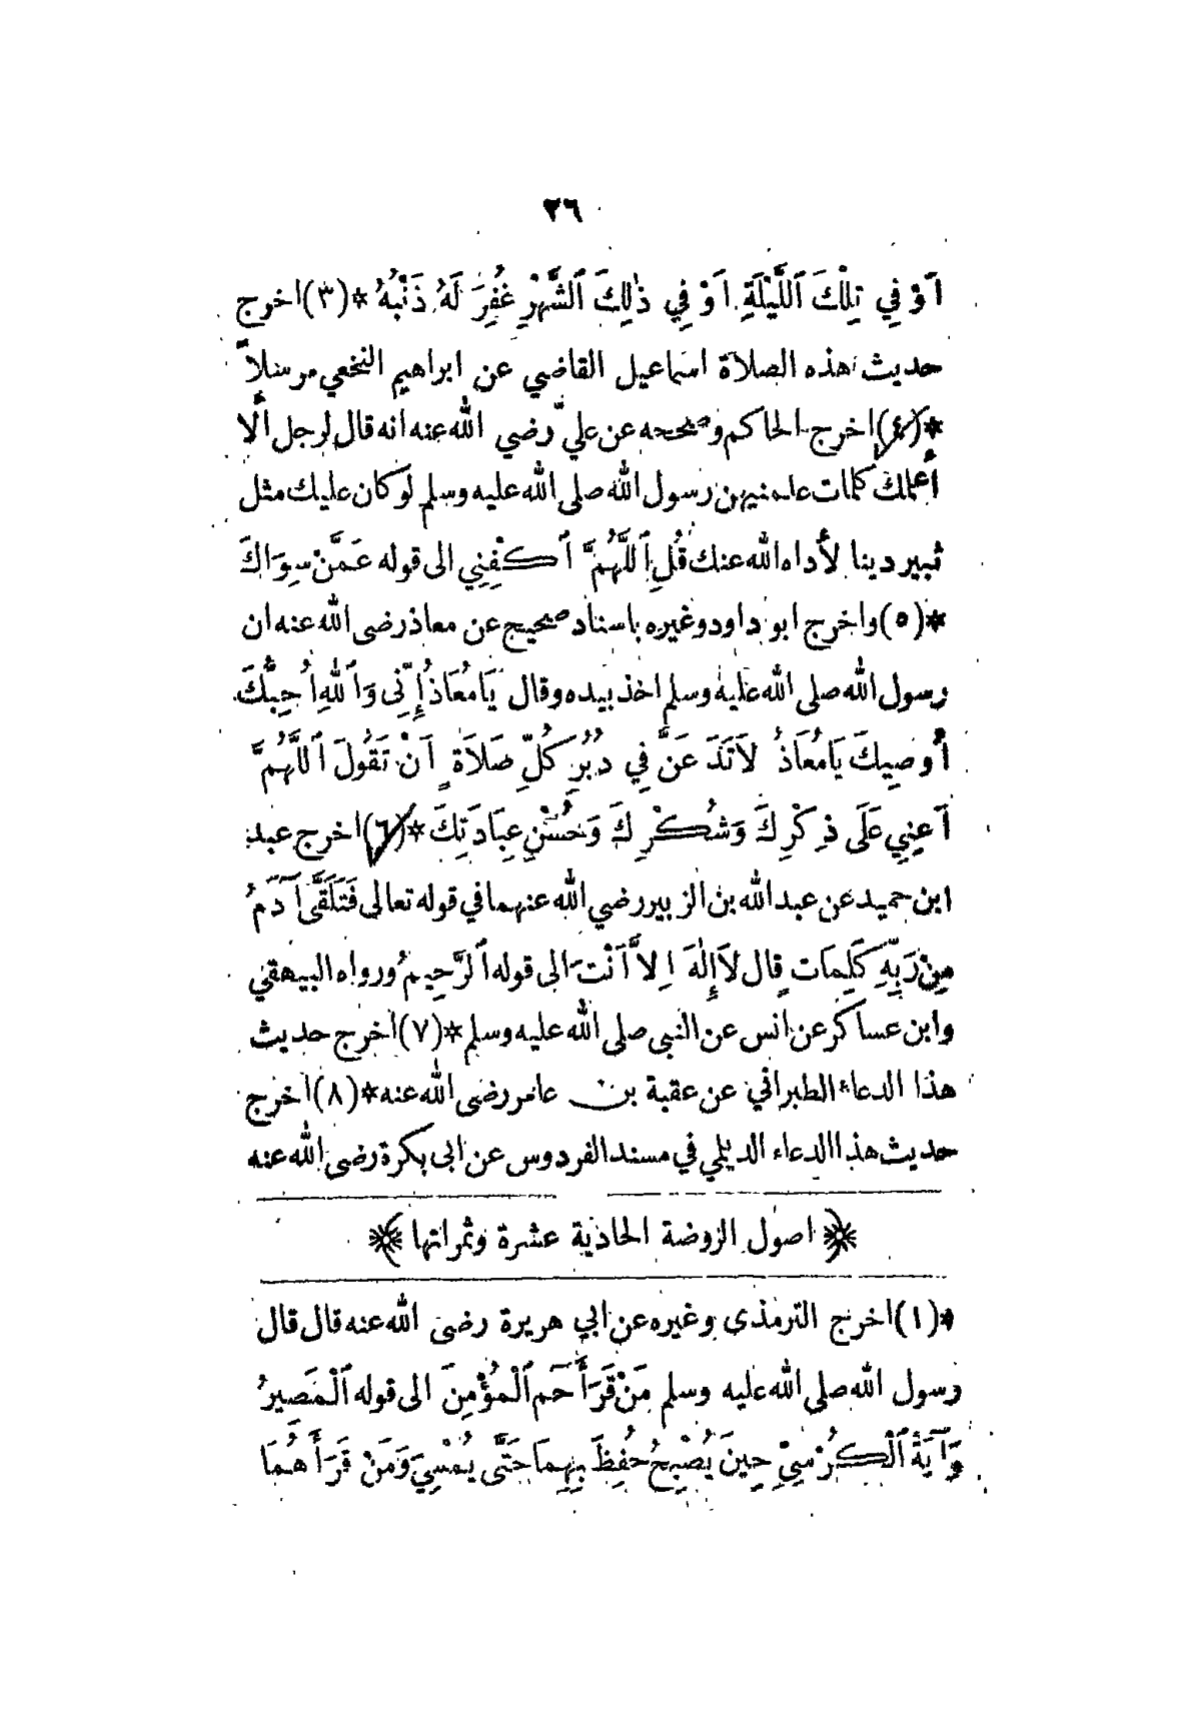 ٢٦
اَوْ فِي تِلْكَ ٱللَّيْلَةِ اَوْ فِي ذٰلِكَ ٱلشَّهْرِ غُفِرَ لَهُ ذَنْبُهُ *(٣) اخرج
حديث هذه الصلاة اسماعيل القاضي عن ابراهيم النخعي مرسلاً
*(٤) اخرج الحاكم وصححه عن عليّ رضي الله عنه انه قال لرجل ألا
أعلمك كلمات علمنيهن رسول الله صلى الله عليه وسلم لو كان عليك مثل
ثبير دينا لأداه الله عنك قُلِ ٱللَّهُمَّ ٱكْفِنِي الى قوله عَمَّنْ سِوَاكَ
*(٥) واخرج ابو داود وغيره باسناد صحيح عن معاذ رضى الله عنه ان
رسول الله صلى الله عليه وسلم اخذ بيده وقال يَا مُعَاذُ إِنِّى وَٱللهِ أُحِبُّكَ
أُوصِيكَ يَا مُعَاذُ لاَ تَدَعَنَّ فِي دُبُرِ كُلِّ صَلاَةٍ اَنْ تَقُولَ ٱللَّهُمَّ
اَعِنِي عَلَى ذِكْرِكَ وَشُكْرِكَ وَحُسْنِ عِبَادَتِكَ *(٦) اخرج عبد
ابن حميد عن عبد الله بن الزبير رضي الله عنهما في قوله تعالى فَتَلَقَّى آدَمُ
مِنْ رَبِّهِ كَلِمَاتٍ قال لاَ إِلٰهَ اِلاَّ اَنْتَ الى قوله ٱلرَّحِيمُ ورواه البيهقي
وابن عساكر عن انس عن النبى صلى الله عليه وسلم *(٧) اخرج حديث
هذا الدعاء الطبراني عن عقبة بن عامر رضى الله عنه *(٨) اخرج
حديث هذا الدعاء الديلمي في مسند الفردوس عن ابى بكرة رضى الله عنه
﴿ اصول الروضة الحادية عشرة وثمراتها ﴾
*(١) اخرج الترمذى وغيره عن ابي هريرة رضى الله عنه قال قال
رسول الله صلى الله عليه وسلم مَنْ قَرَأَ حَم ٱلْمُؤْمِنَ الى قوله ٱلْمَصِيرُ
وَآيَةَ ٱلْكُرْسِيِّ حِينَ يُصْبِحُ حُفِظَ بِهِمَا حَتَّى يُمْسِيَ وَمَنْ قَرَأَهُمَا